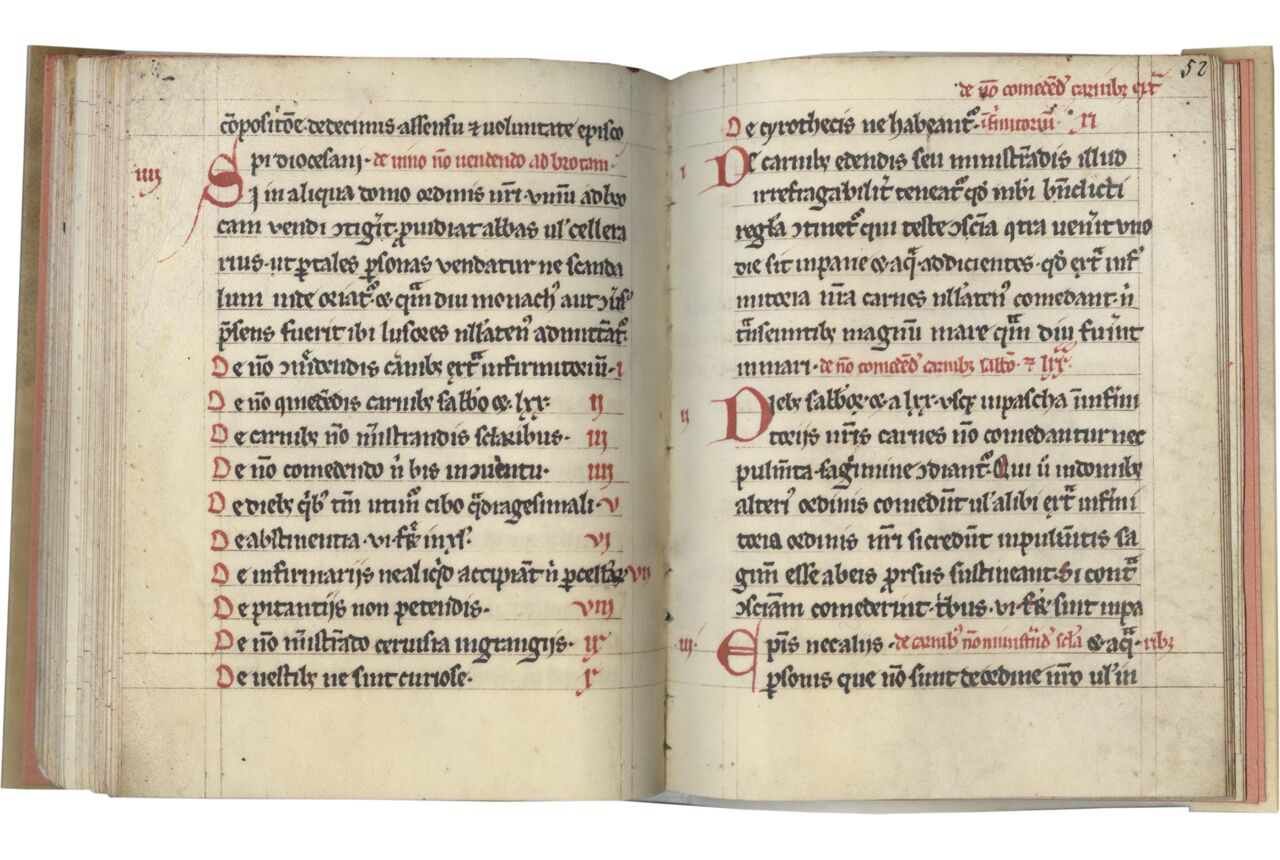 co̅positio̅e de decimis assensu ⁊ voluntate episco
pi diocesani · de vino no̅ vendendo ad brocam ·
iiij
Si in aliqua domo ordinis nr̅i vinu̅ ad bro
cam vendi ↄtig̅it · p̱uidiat abbas ul' cellera
rius · ut p̱ tales p̱sonas vendatur ne scanda
lum inde oriat᷑ · & qu̅adiu monachꝰ aut ↄu̅sꝰ
p̅sens fuerit ibi lusores ull̅atenꝰ admitta̅t᷑ ·
De no̅ comedendis ca̅nibꝫ ext̅ infirmitoriu̅ · i
De no̅ comede̅dis carnibꝫ sabb̅o & lxx · ij
De carnibꝫ no̅ mi̅strandis sclaribus · iij
De no̅ comedendo n̅ bis in adventu · iiij
De diebꝫ qi̅bꝰ tm̅ utim᷑ cibo qd̅ragesimali · v
De abstinentia · vi · fe̅ in xl' · vj
De infirmarijs ne aliqi̅d accipia̅t n̅ p̱ cellar̅ · vij
De pitantijs non petendis · viij
De no̅ mi̅stra̅do cervisia in grangijs · ix
De vestibꝫ ne sint curiose · x
52
de no̅ comede̅d' carnibꝫ ext̅
De cyrothecis ne habeant᷑ · i̅firmitoriu̅ · xi
i
De carnibꝫ edendis seu ministra̅dis illud
irrefragabilit̅ teneat᷑ qd̅ in bi̅ bn̅dicti
regl̅a ↄtinet᷑ qui teste ↄscia̅ ↄtra venit̅ uno
die sit in pane & aq̅ · addicientes · qd̅ ext̅ infꝰ
mitoria nr̅a carnes ull̅atenꝰ comedant · n̅
tn̅seuntibꝫ magnu̅ mare qu̅adiu fueri̅nt
in mari · de no̅ comede̅d' carnibꝫ sabb̅o · ⁊ lxx̅ ·
ij
Diebꝫ sabb̅or̅ & a lxx · usqꝫ in pascha i̅n infi̅mi
torijs nr̅is carnes no̅ comedantur nec
pulm̅ta sag̅imine ↄdiant᷑ · Qui u̅ in domibꝫ
alteriꝰ ordinis comedu̅t ul' alibi ext̅ infi̅mi
toria ordinis nr̅i si credu̅t in pulm̅tis sa
gim̅ esse ab eis prorsus sustineant · Si cont̅
ↄscia̅m comederint · t̅bus · vi · fe̅ · sint in pa
iij
ne̅ & aq̅ · de carnibꝰ no̅ ministra̅d' scl̅a ribꝫ
Ep̅is nec aliis
p̱sonis que no̅ sunt de ordine nr̅o ul' in